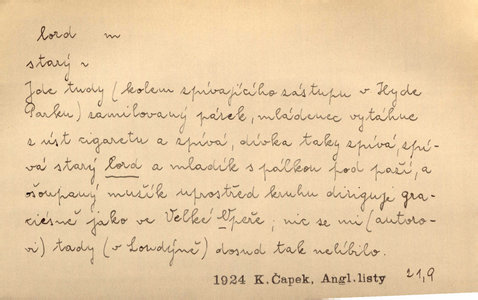 lord m
starý
Jde tudy (kolem zpívajícího zástupu v Hyde
Parku) zamilovaný párek, mládenec vytáhne
z úst cigaretu a zpívá, dívka taky zpívá, zpí-
vá starý lord a mladík s pálkou pod paží, a
ošoupaný mužík uprostřed kruhu diriguje gra-
ciésně jako ve Velké Opeře; nic se mi (autoro-
vi) tady (v Londýně) dosud tak nelíbilo.
1924 K.Čapek, Angl.listy 21,9